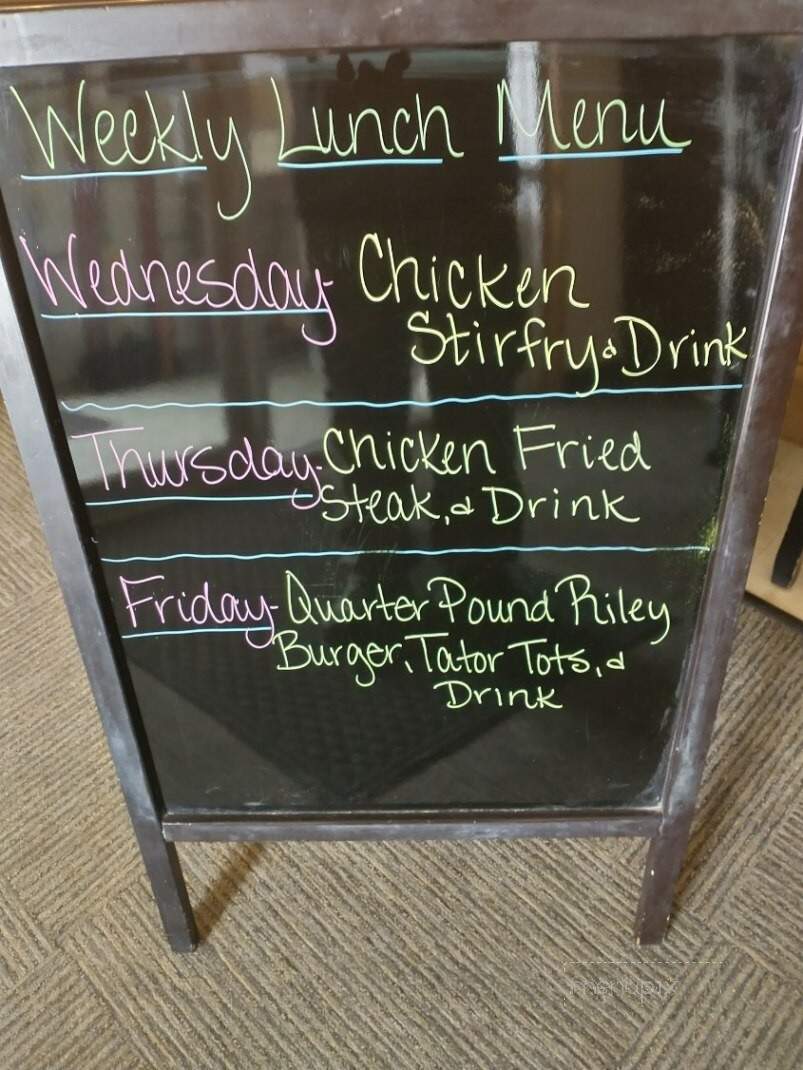 Weekly Lunch Menu
Wednesday- Chicken
Stirfry & Drink
Thursday- Chicken Fried
Steak, & Drink
Friday- Quarter Pound Riley
Burger, Tator Tots, &
Drink
menupix